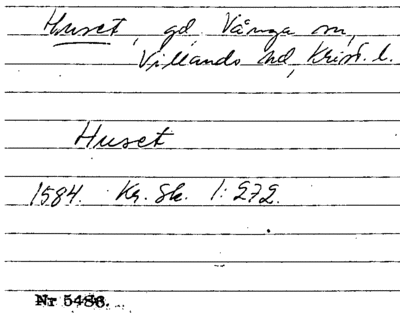 Huset, gd, Vånga sn,
Villands hd, Krist. l.
Huset
1584. Kr. Sk. 1: 272.
Nr 5486.